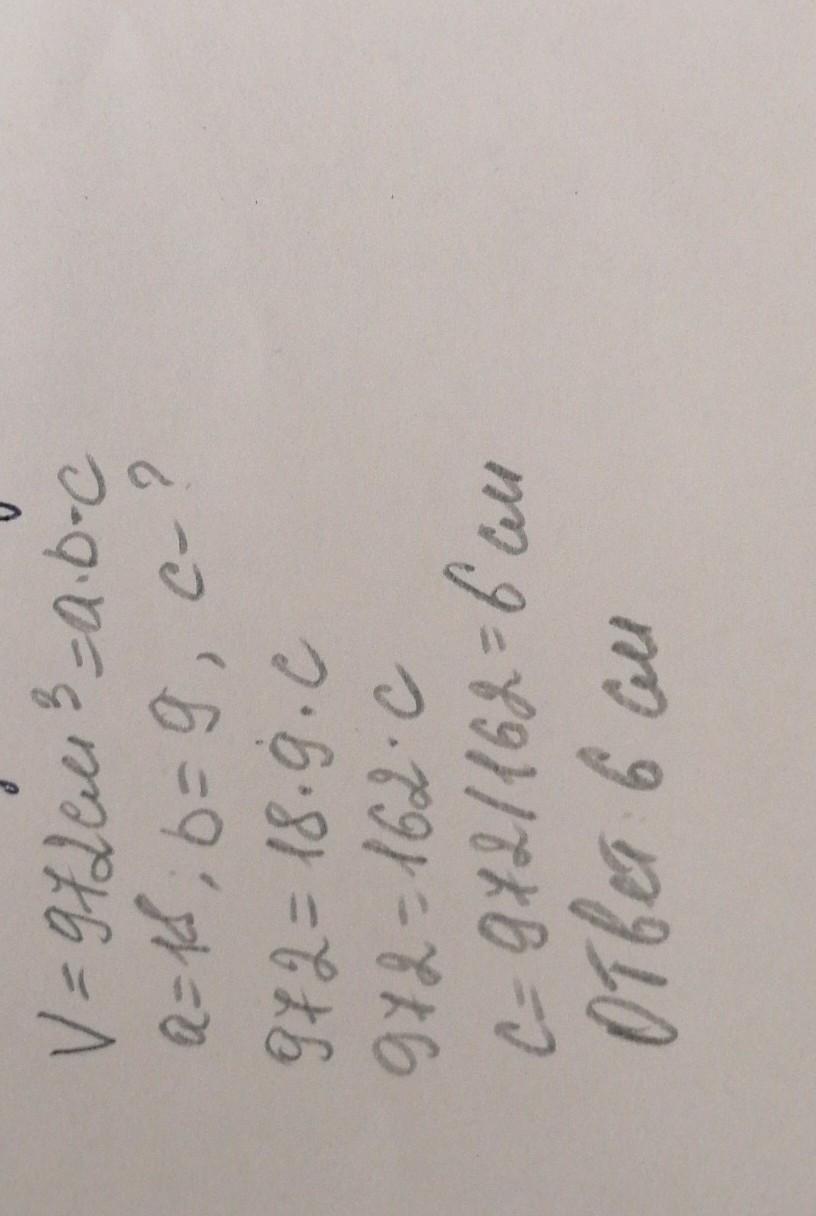 V = 972 см³ = a·b·c
a=18, b=9, c-?
972 = 18·9·c
972 = 162·c
c = 972/162 = 6 см
Ответ: 6 см